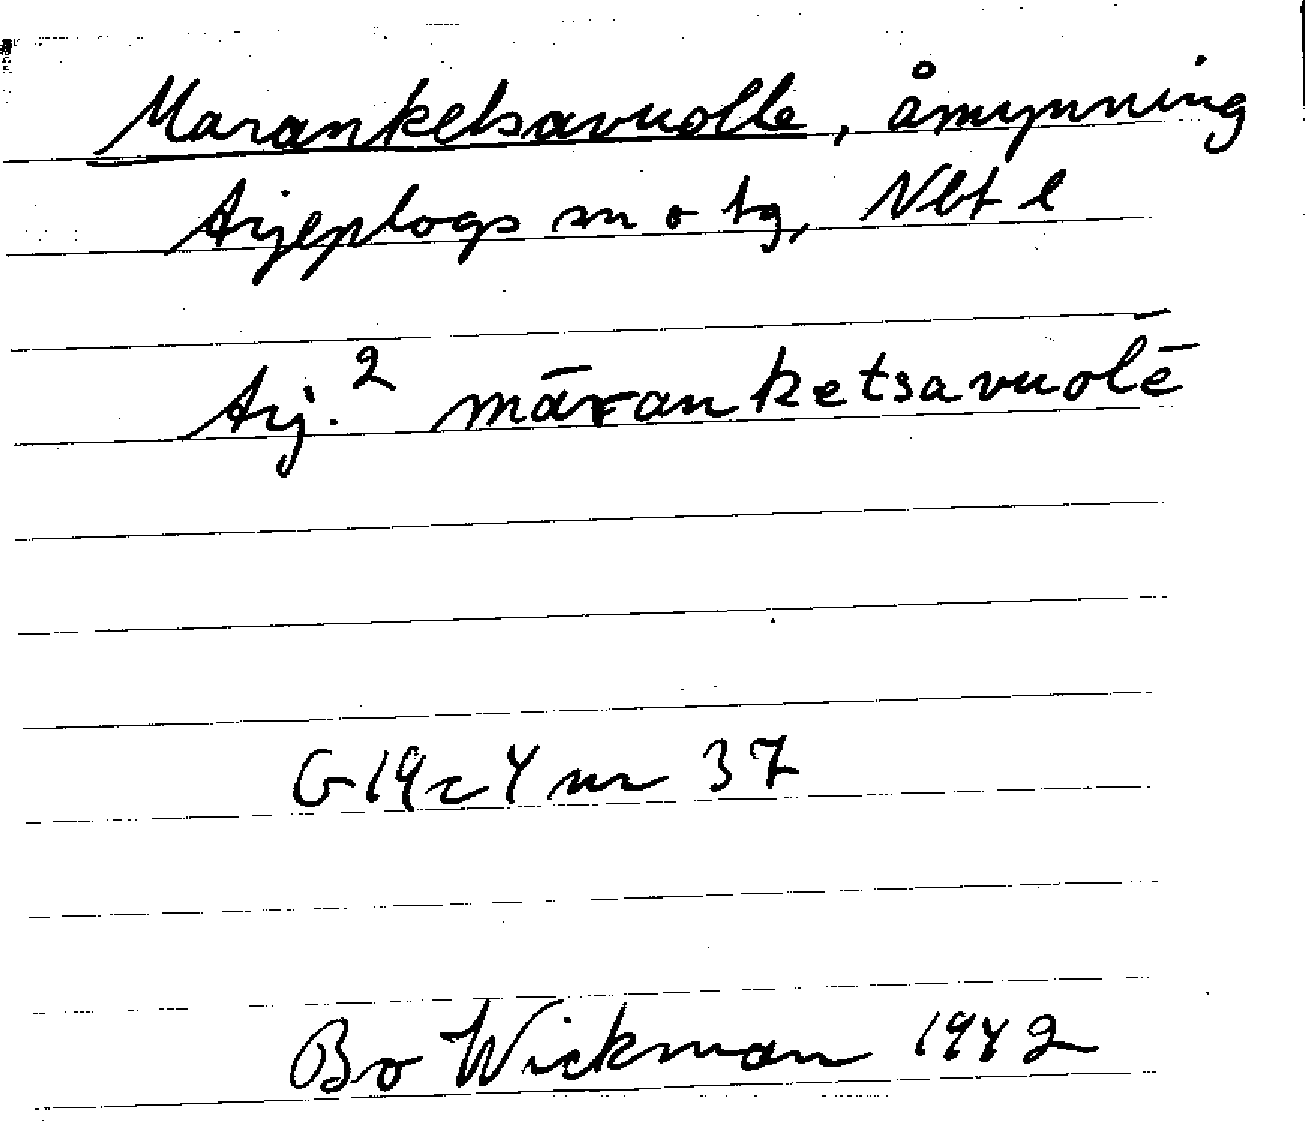 Maranketsavuolle, åmynning
Arjeplogs sn o tg, Nbt l
Arj.² māranketsavuolē
G19c4 nr 37
Bo Wickman 1942